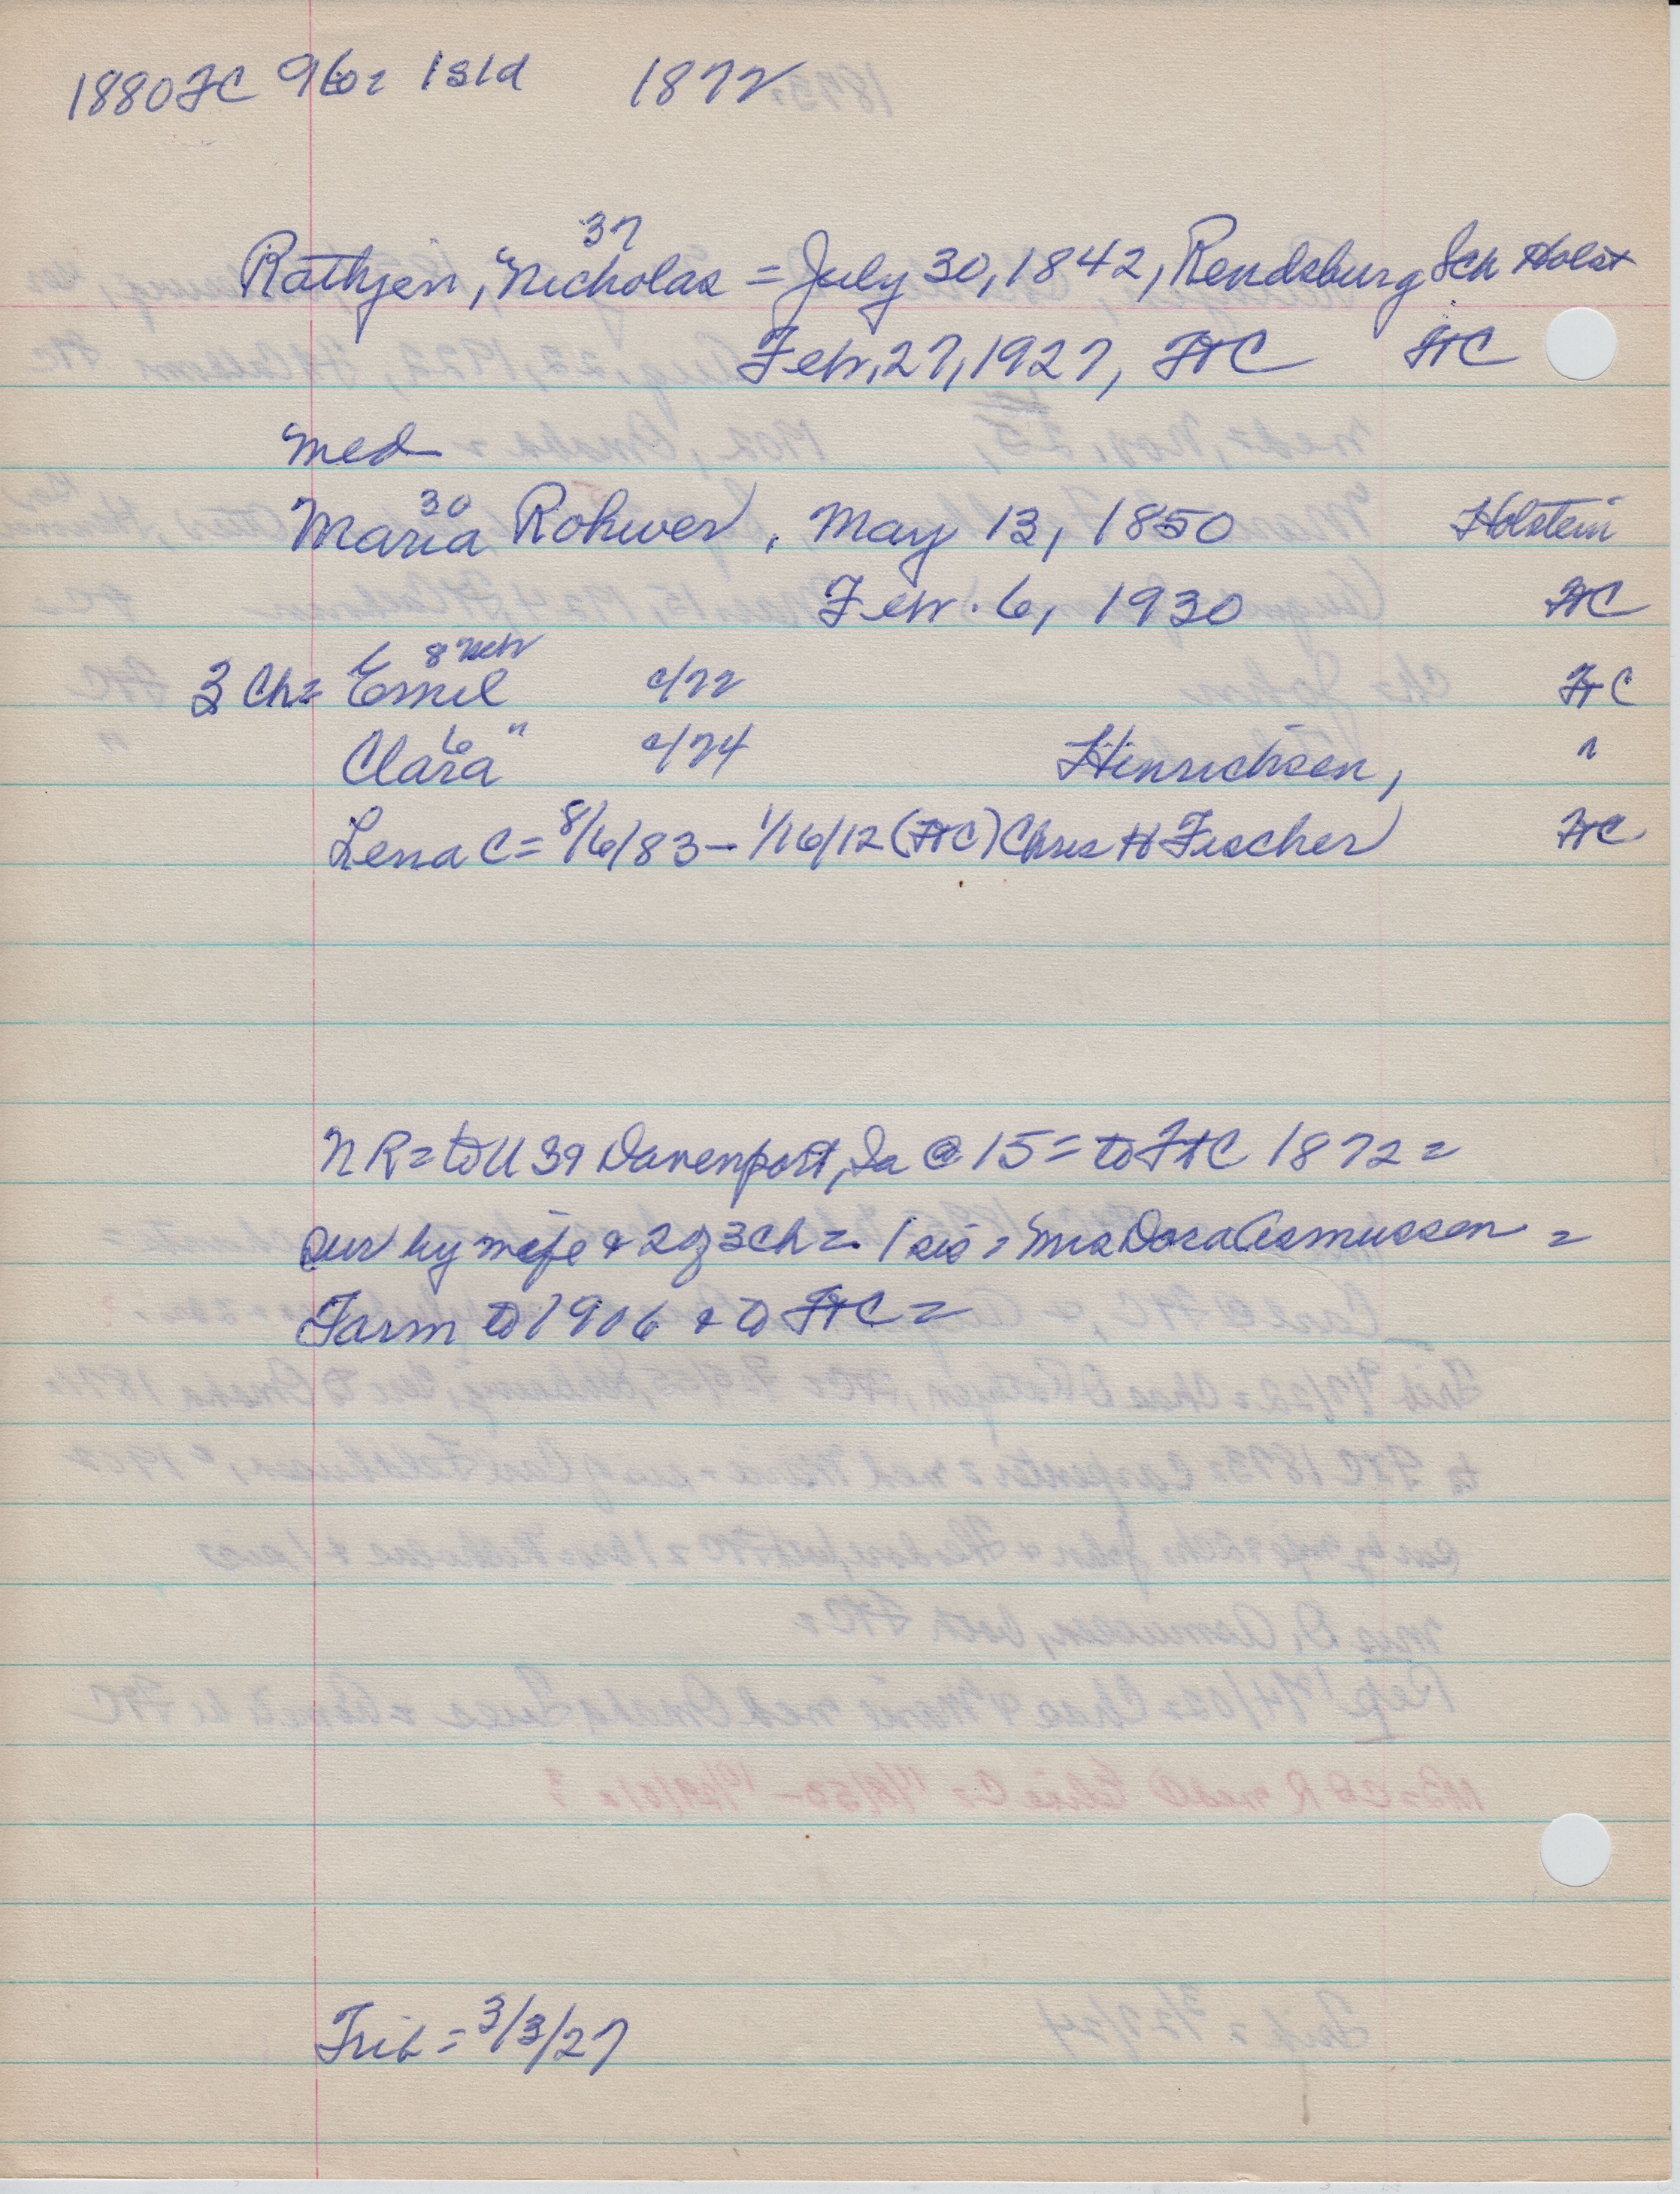 1880 FC 960= Isld 1872
37
Rathjen, Nicholas = July 30, 1842, Rendsburg Sch Holst
Febr. 27, 1927, FtC FtC
med
30
Maria Rohwer, May 13, 1850 Holstein
Febr. 6, 1930 FtC
8 Neb
3 Ch= Emil c/72 FtC
6 "
Clara c/74 Hinrichsen, "
Lena C = 8/6/83 - 1/16/12 (FtC) Chris H Fischer FtC
N R = to U S @ Davenport, Ia @ 15 = to FtC 1872 =
sur by wife & 2 of 3 ch = 1 sis = Mrs Dora Asmussen =
Farm to 1906 & to FtC =
Trib = 3/3/27